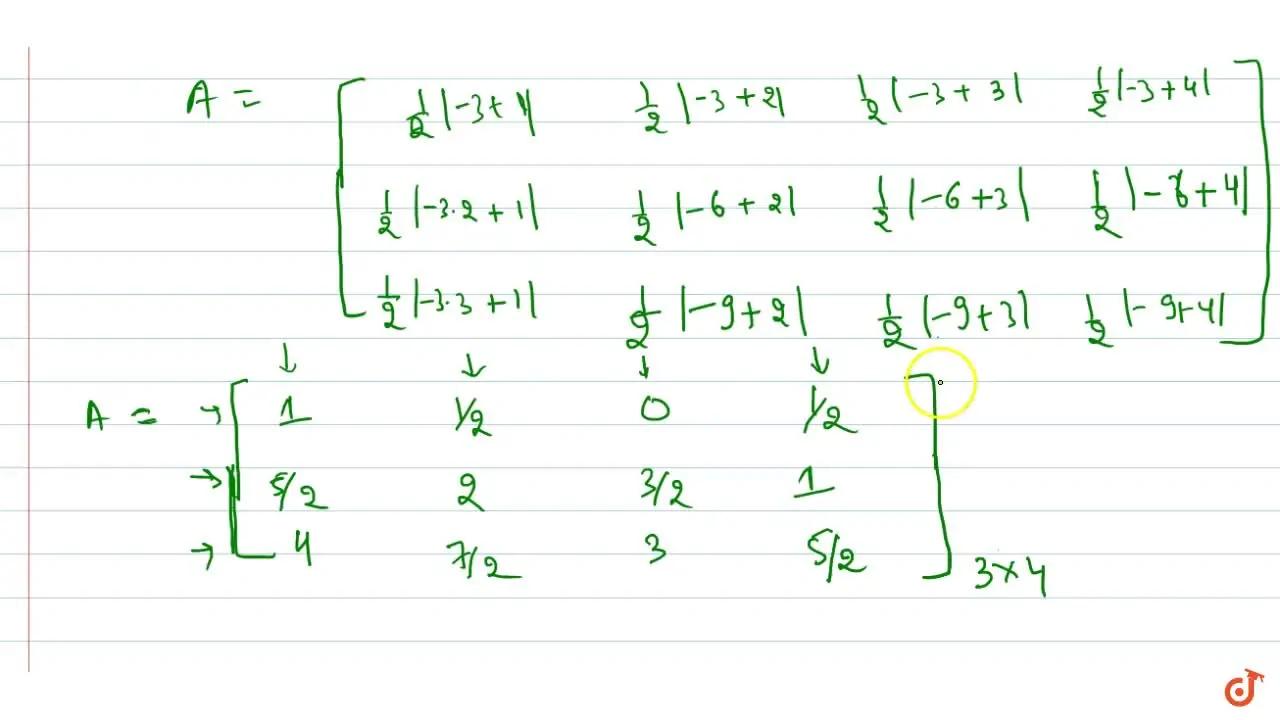 A = [ 1/2 |-3+1| 1/2 |-3+2| 1/2 |-3+3| 1/2 |-3+4|
1/2 |-3·2+1| 1/2 |-6+2| 1/2 |-6+3| 1/2 |-6+4|
1/2 |-3·3+1| 1/2 |-9+2| 1/2 |-9+3| 1/2 |-9+4| ]
↓ ↓ ↓ ↓
A = → [ 1 1/2 0 1/2
→ 5/2 2 3/2 1
→ 4 7/2 3 5/2 ] 3×4